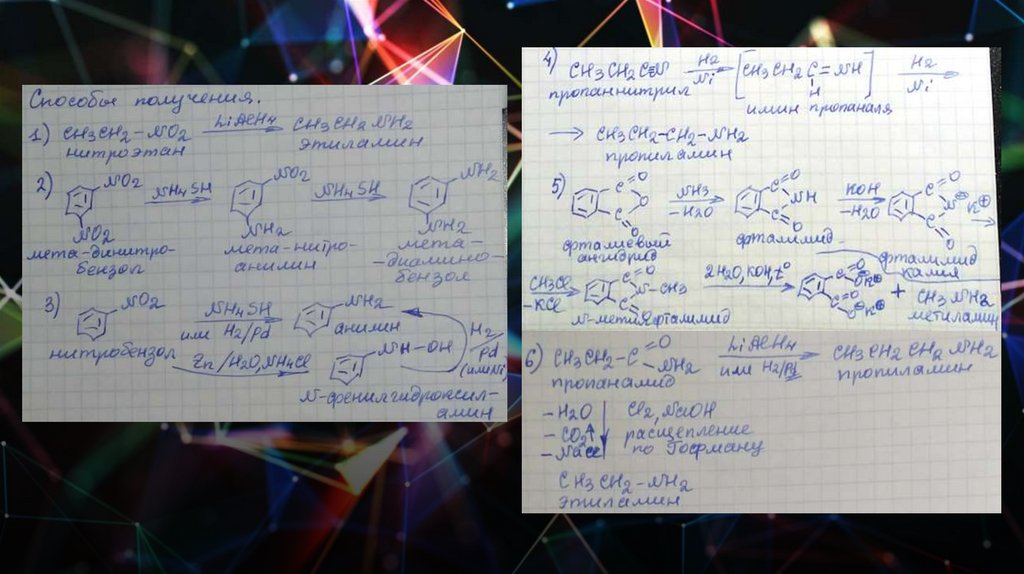 Способы получения.
1) CH3CH2-NO2 LiAlH4 CH3CH2NH2
нитроэтан этиламин
2) NO2 NH4SH NO2 NH4SH NH2
NO2 NH2 NH2
мета-динитро- мета-нитро- мета-
бензол анилин -диамино-
бензол
3) NO2 NH4SH NH2
или H2/Pd анилин
нитробензол Zn/H2O,NH4Cl NH-OH H2/Pd (или Ni)
N-фенилгидроксил-
амин
4) CH3CH2C≡N H2 Ni [CH3CH2C=NH] H2 Ni
H
пропаннитрил имин пропаналя
→ CH3CH2-CH2-NH2
пропиламин
5) C=O O C=O NH3 -H2O C=O NH C=O KOH -H2O C=O N⊖ K⊕ C=O
фталиевый фталимид фталимид
ангидрид калия
CH3Cl -KCl C=O N-CH3 C=O 2H2O,KOH,t° C=O O⊖K⊕ C=O O⊖K⊕ + CH3NH2
N-метилфталимид метиламин
6) CH3CH2-C=O NH2 LiAlH4 CH3CH2CH2NH2
пропанамид или H2/Pd пропиламин
-H2O Cl2,NaOH
-CO2↑ расщепление
-NaCl по Гофману
CH3CH2-NH2
этиламин